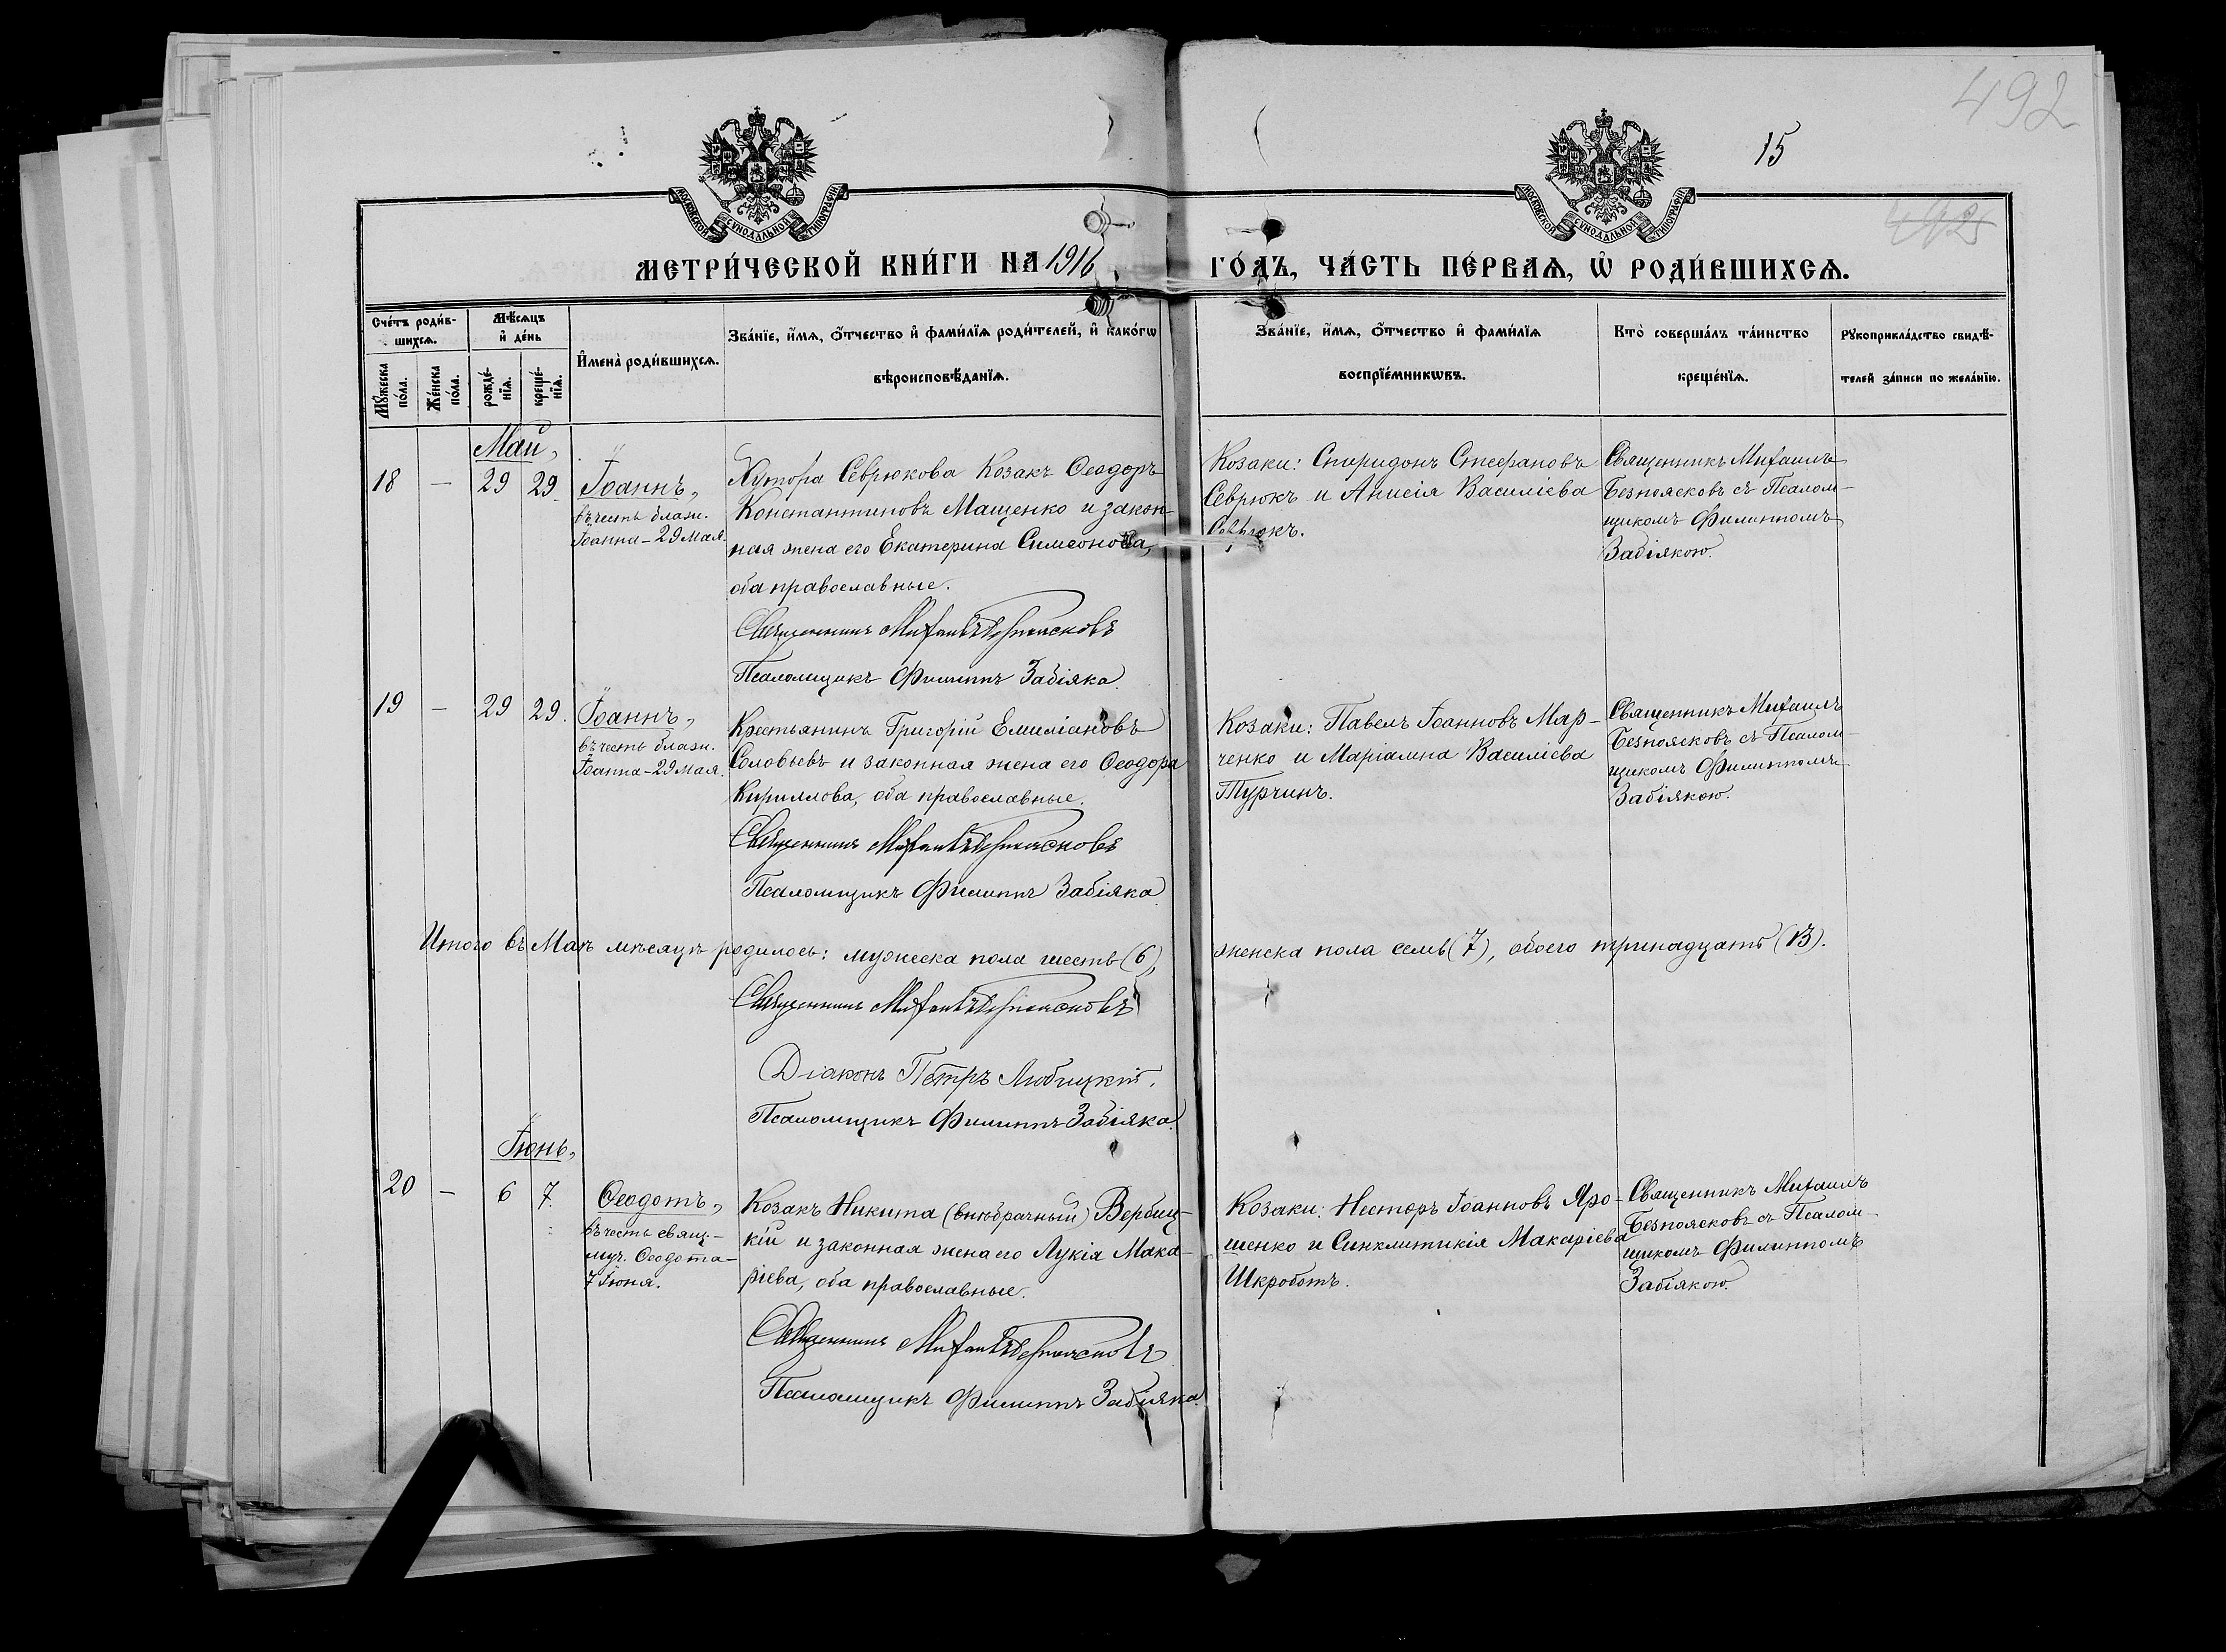 492
15
МОСКОВСКОЙ СѴНОДАЛЬНОЙ ТИПОГРАФІИ
МОСКОВСКОЙ СѴНОДАЛЬНОЙ ТИПОГРАФІИ
492
МЕТРИ́ЧЕСКОЙ КНИ́ГИ НА 1916 ГО́ДЪ, ЧА́СТЬ ПЕ́РВАѦ, Ѡ҆ РОДИ́ВШИХСѦ.
Сче́тъ роди́в-
шихсѧ.
Мꙋ́жеска по́ла.
Же́нска по́ла.
Мѣ́сѧцъ
и҆ де́нь
рожде́-
нїѧ.
креще́-
нїѧ.
И҆мена̀ роди́вшихсѧ.
Зва́нїе, и҆́мѧ, ѻ҆́тчество и҆ фами́лїѧ роди́телей, и҆ како́гѡ
вѣроисповѣ́данїѧ.
Зва́нїе, и҆́мѧ, ѻ҆́тчество и҆ фами́лїѧ
воспрїе́мникѡвъ.
Кто̀ соверша́лъ та́инство
креще́нїѧ.
Рꙋкоприкла́дство свидѣ́-
телей за́писи по жела́нїю.
Май,
18 — 29 29
Іоаннъ,
въ честь блаж.
Іоанна – 29 Мая.
Хутора Севрюкова Козакъ Ѳеодоръ
Константиновъ Мащенко и закон-
ная жена его Екатерина Симеонова,
оба православные.
Священникъ Михаилъ Безпоясковъ
Псаломщикъ Филиппъ Забіяка.
Козаки: Спиридонъ Стефановъ
Севрюкъ и Анисія Василіева
Севрюкъ.
Священникъ Михаилъ
Безпоясковъ съ Псалом-
щикомъ Филиппомъ
Забіякою.
19 — 29 29.
Іоаннъ,
въ честь блаж.
Іоанна – 29 Мая.
Крестьянинъ Григорій Емиліановъ
Соловьевъ и законная жена его Ѳеодора
Кириллова, оба православные.
Священникъ Михаилъ Безпоясковъ
Псаломщикъ Филиппъ Забіяка.
Козаки: Павелъ Іоанновъ Мар-
ченко и Маріамна Василіева
Турчинъ.
Священникъ Михаилъ
Безпоясковъ съ Псалом-
щикомъ Филиппомъ
Забіякою.
Итого въ Маѣ мѣсяцѣ родилось: мужеска пола шесть (6), женска пола семь (7), обоего тринадцать (13).
Священникъ Михаилъ Безпоясковъ
Діаконъ Петръ Любицкій.
Псаломщикъ Филиппъ Забіяка.
Іюнь,
20 — 6 7.
Ѳеодотъ,
въ честь свящ.-
муч. Ѳеодота –
7 Іюня.
Козакъ Никита (внѣбрачный) Вербиц-
кій и законная жена его Лукія Мака-
ріева, оба православные.
Священникъ Михаилъ Безпоясковъ
Псаломщикъ Филиппъ Забіяка.
Козаки: Несторъ Іоанновъ Яро-
шенко и Синклитикія Макаріева
Шкроботъ.
Священникъ Михаилъ
Безпоясковъ съ Псалом-
щикомъ Филиппомъ
Забіякою.